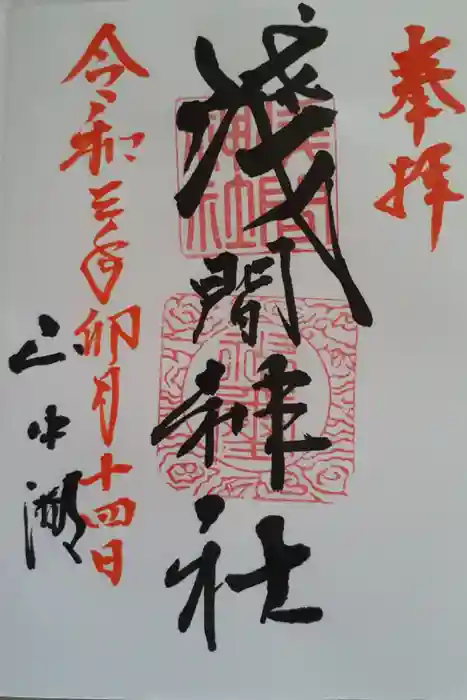 奉拝
淺間神社
令和三年卯月十四日
山中湖